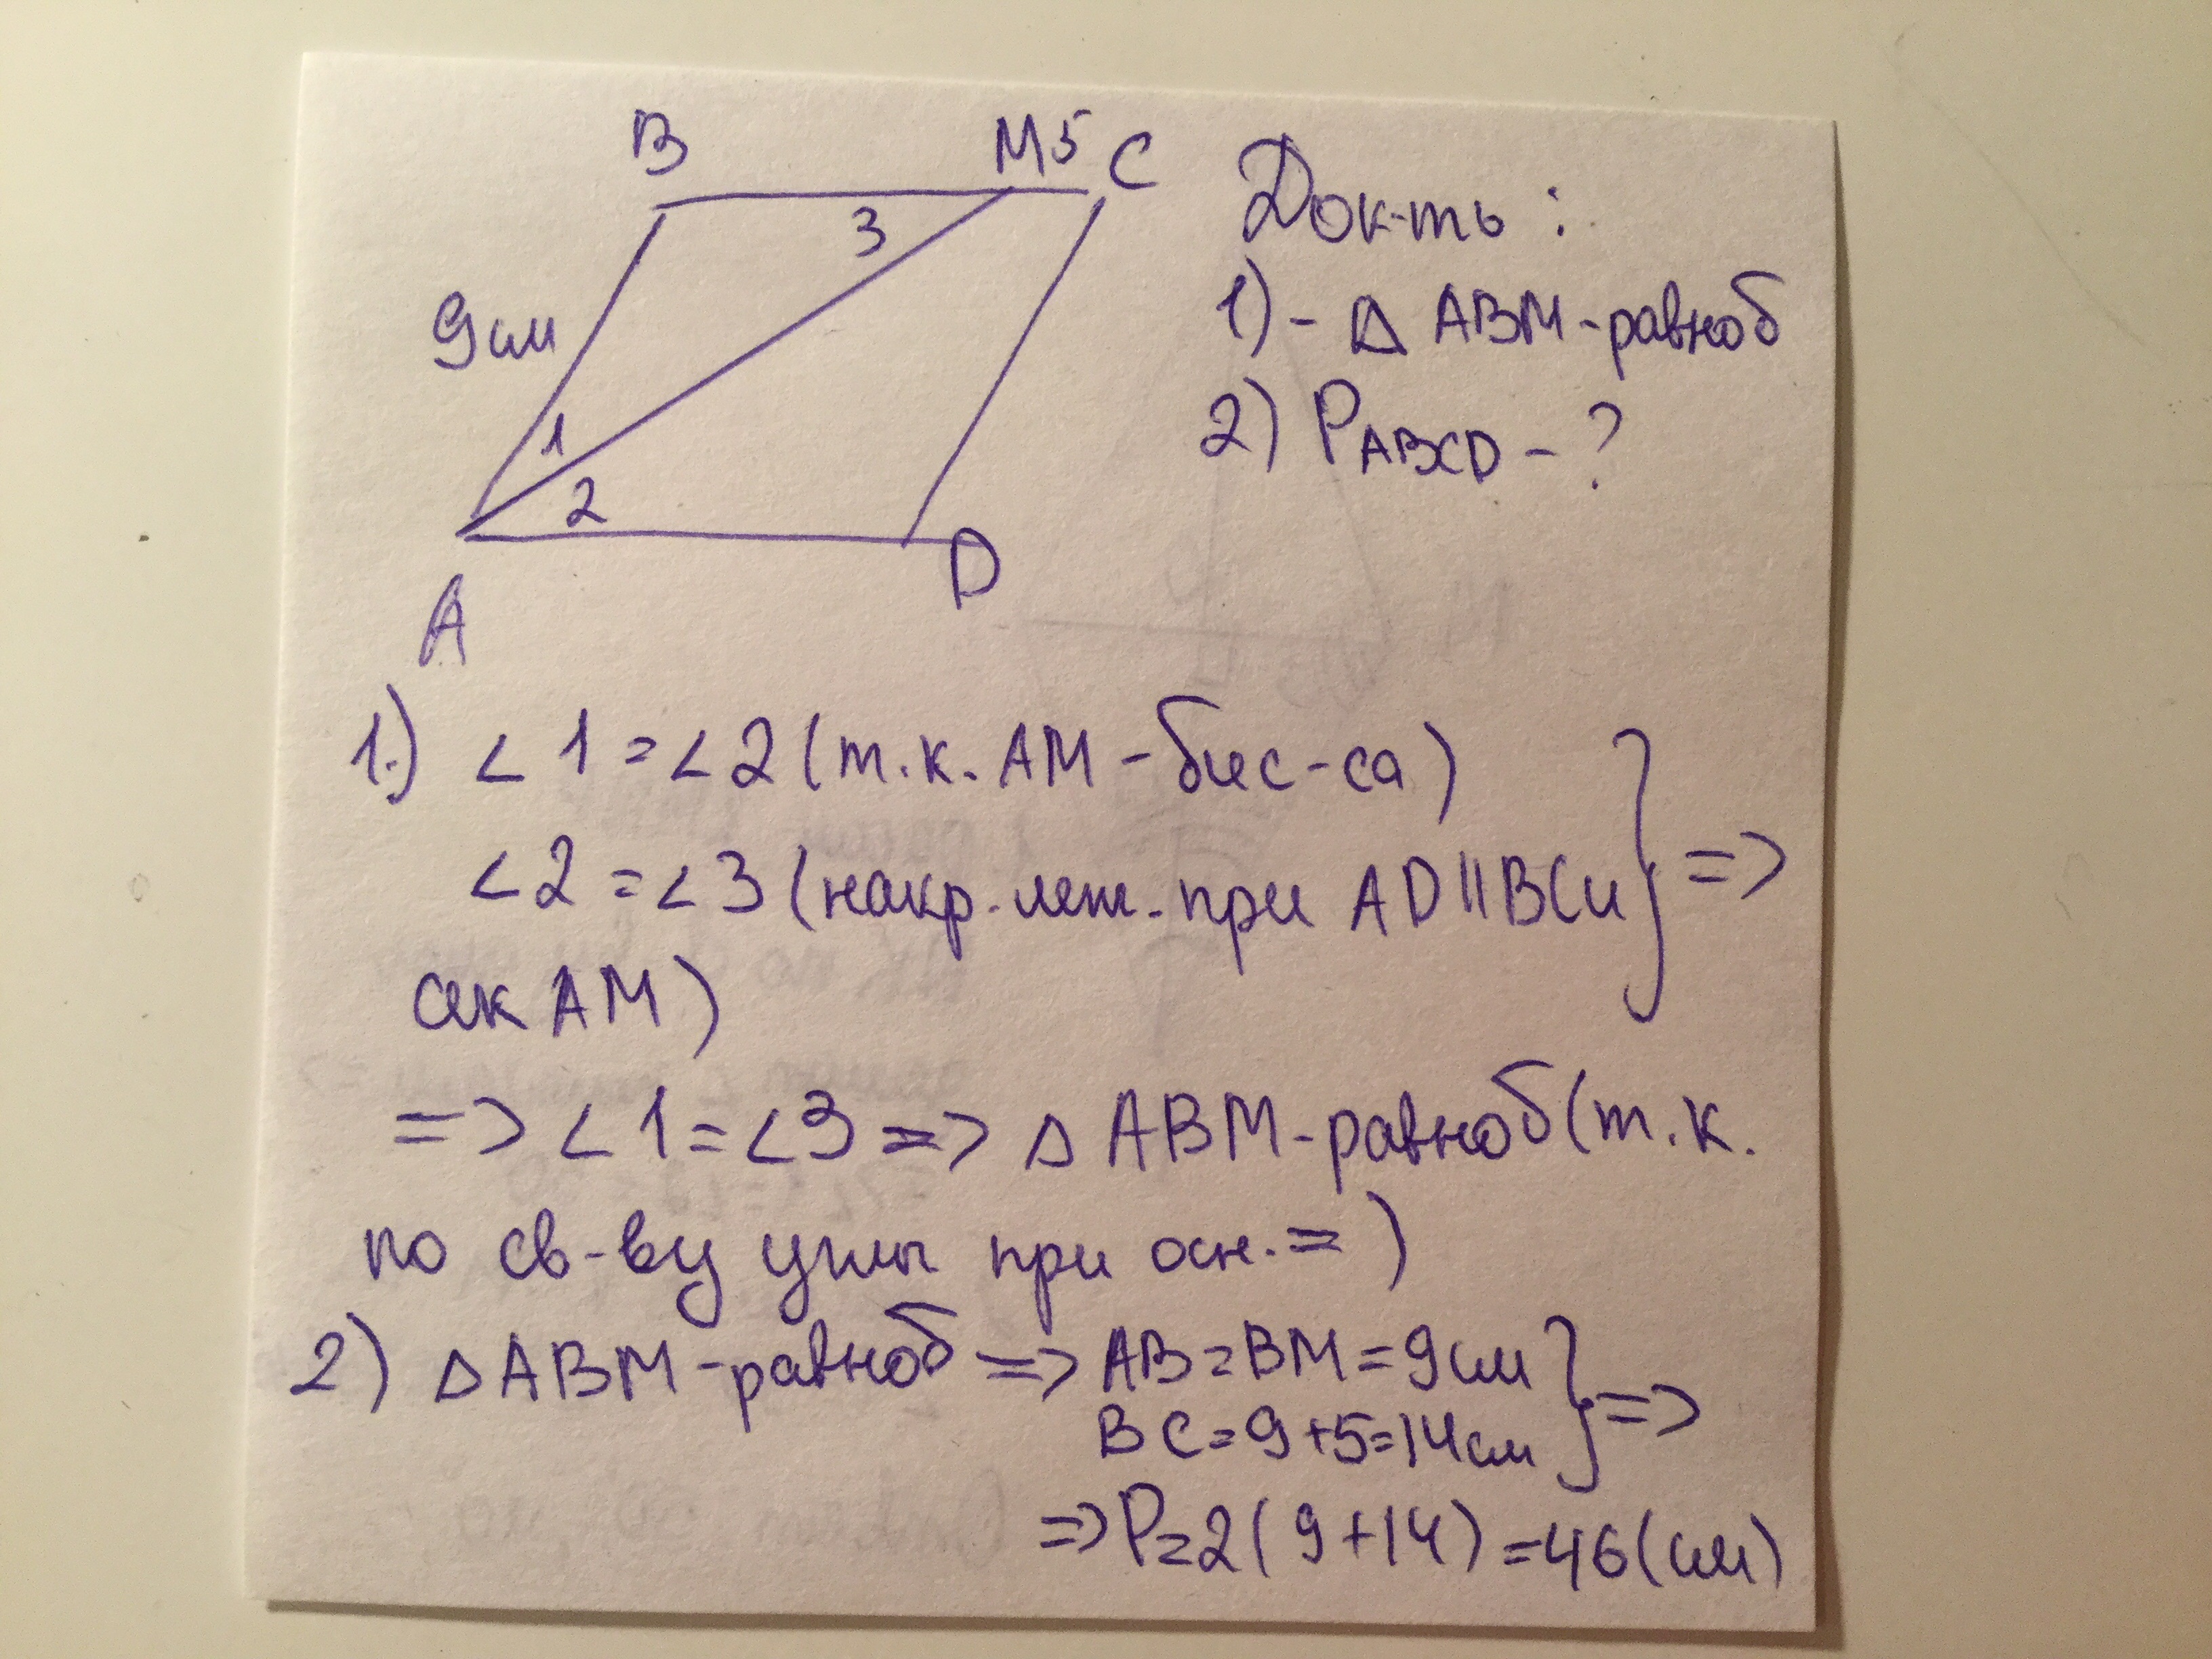 B M 5 C
3
9 см
1
2
A D
Док-ть :
1) - Δ ABM - равноб
2) P ABCD - ?
1.) ∠1 = ∠2 (т.к. AM - бис-са)
∠2 = ∠3 (накр. леж. при AD || BC и } =>
сек AM)
=> ∠1 = ∠3 => Δ ABM - равноб (т.к.
по св-ву углы при осн. = )
2) Δ ABM - равноб => AB = BM = 9 см } =>
BC = 9 + 5 = 14 см
=> P = 2 ( 9 + 14 ) = 46 (см)